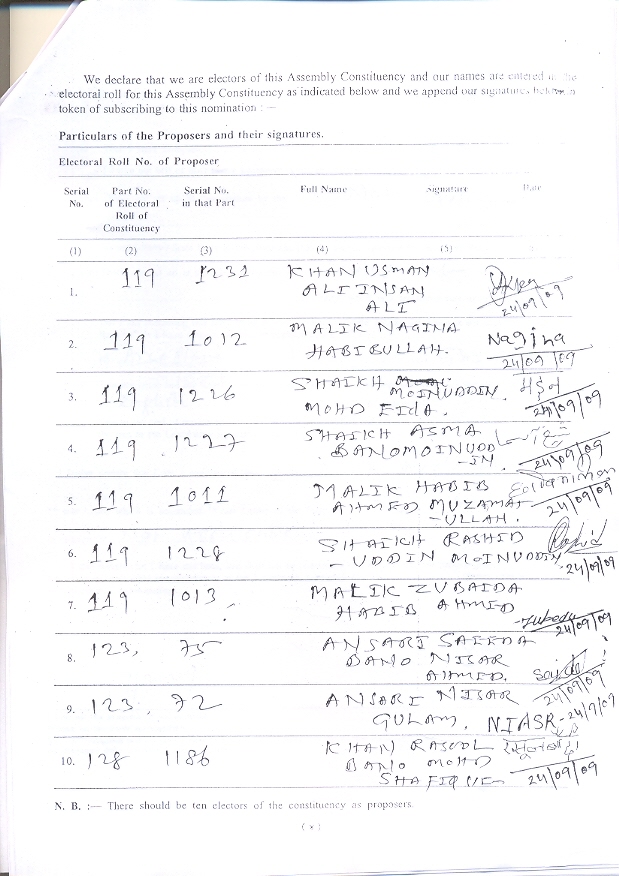 We declare that we are electors of this Assembly Constituency and our names are entered in the
electoral roll for this Assembly Constituency as indicated below and we append our signatures below in
token of subscribing to this nomination : —
Particulars of the Proposers and their signatures.
Electoral Roll No. of Proposer
Serial No. Part No. of Electoral Roll of Constituency Serial No. in that Part Full Name Signature Date
(1) (2) (3) (4) (5)
1. 119 1231 KHAN USMAN
ALI INSAN
ALI
24/09/09
2. 119 1012 MALIK NAGINA Nagina
HABIBULLAH. 24/09/09
3. 119 1226 SHAIKH MOINUDDIN.
MOHD EIDA. 24/09/09
4. 119 1227 SHAIKH ASMA
BANOMOINUDD
-IN. 24/09/09
5. 119 1011 MALIK HABIB
AHMED MUZAMAT 24/09/09
-ULLAH.
6. 119 1228 SHAIKH RASHID Rashid
-UDDIN MOINUDDIN 24/09/09
7. 119 1013 MALIK ZUBAIDA
HABIB AHMED
Zubeda
24/09/09
8. 123, 75 ANSARI SAEEDA
BANO NISAR
AHMED.
24/09/09
9. 123, 72 ANSARI NISAR
GULAM. NIASR 24/9/09
10. 128 1186 KHAN RASUOL
BANO MOHD
SHAFIQUE 24/09/09
N. B. :— There should be ten electors of the constituency as proposers.